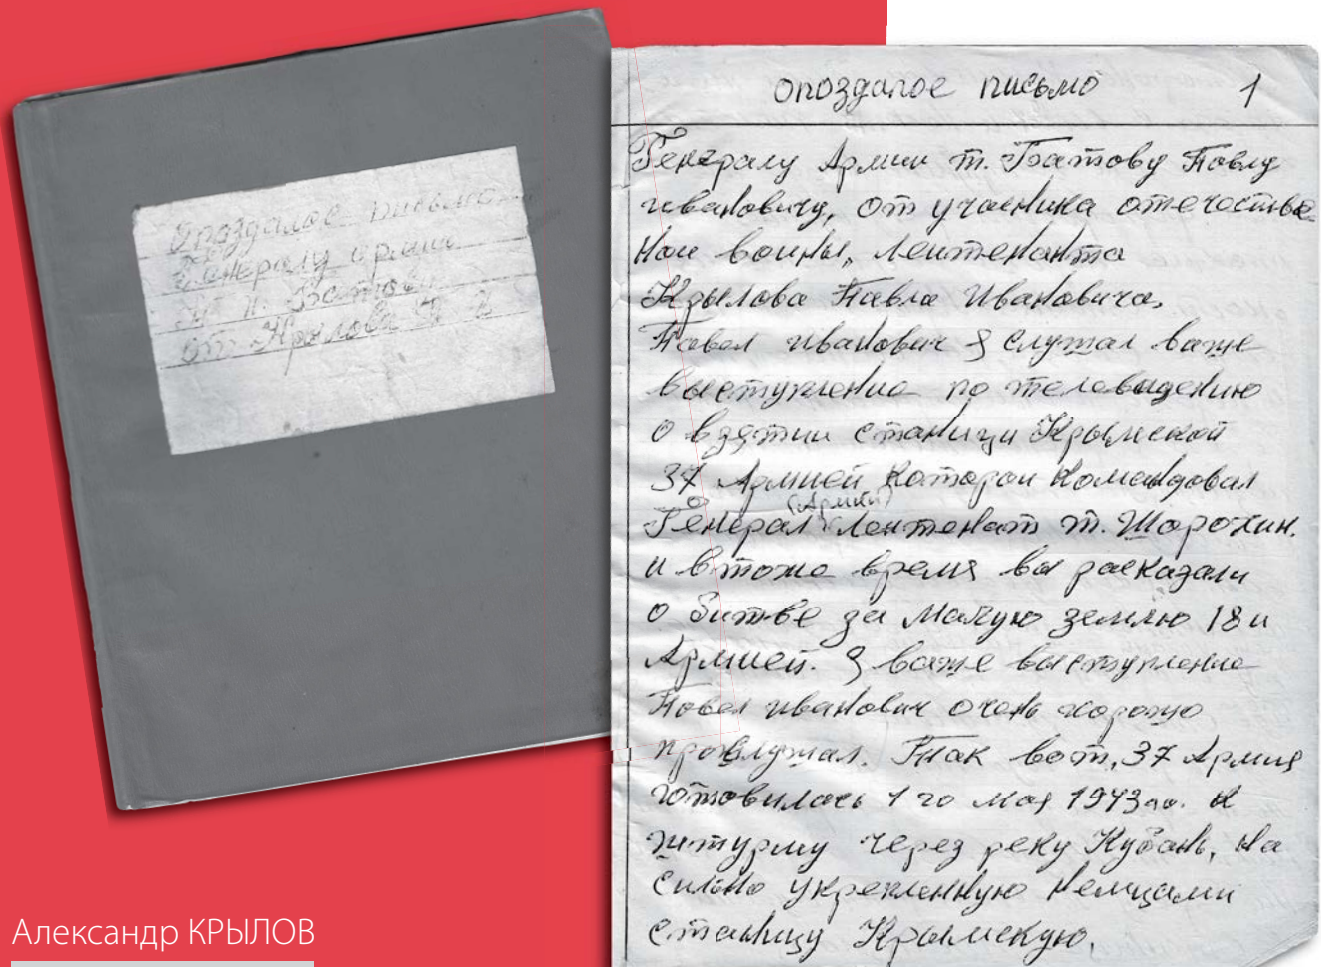 Опоздалое письмо
Генералу армии
П. И. Батову
от Крылова П И
опоздалое письмо 1
Генералу Армии т. Батову Павлу
ивановичу, от учасника отечестве
ной воины, лентенанта
Крылова Павла Ивановича,
Павел иванович я слушал ваше
выступление по телевидению
о взятии станици Крымской
37 Армией которои командовал
(Армии)
Генерал Лентенат т. Шорохин.
и втоже время вы расказали
о битве за малую землю 18 и
Армией. я ваше выступление
Павел иванович очень хорошо
прослушал. Так вот, 37 Армия
готовилась 1 го мая 1943 го. к
штурму через реку Кубань, на
сильно укрепленную немцами
станицу Крымскую,
Александр КРЫЛОВ